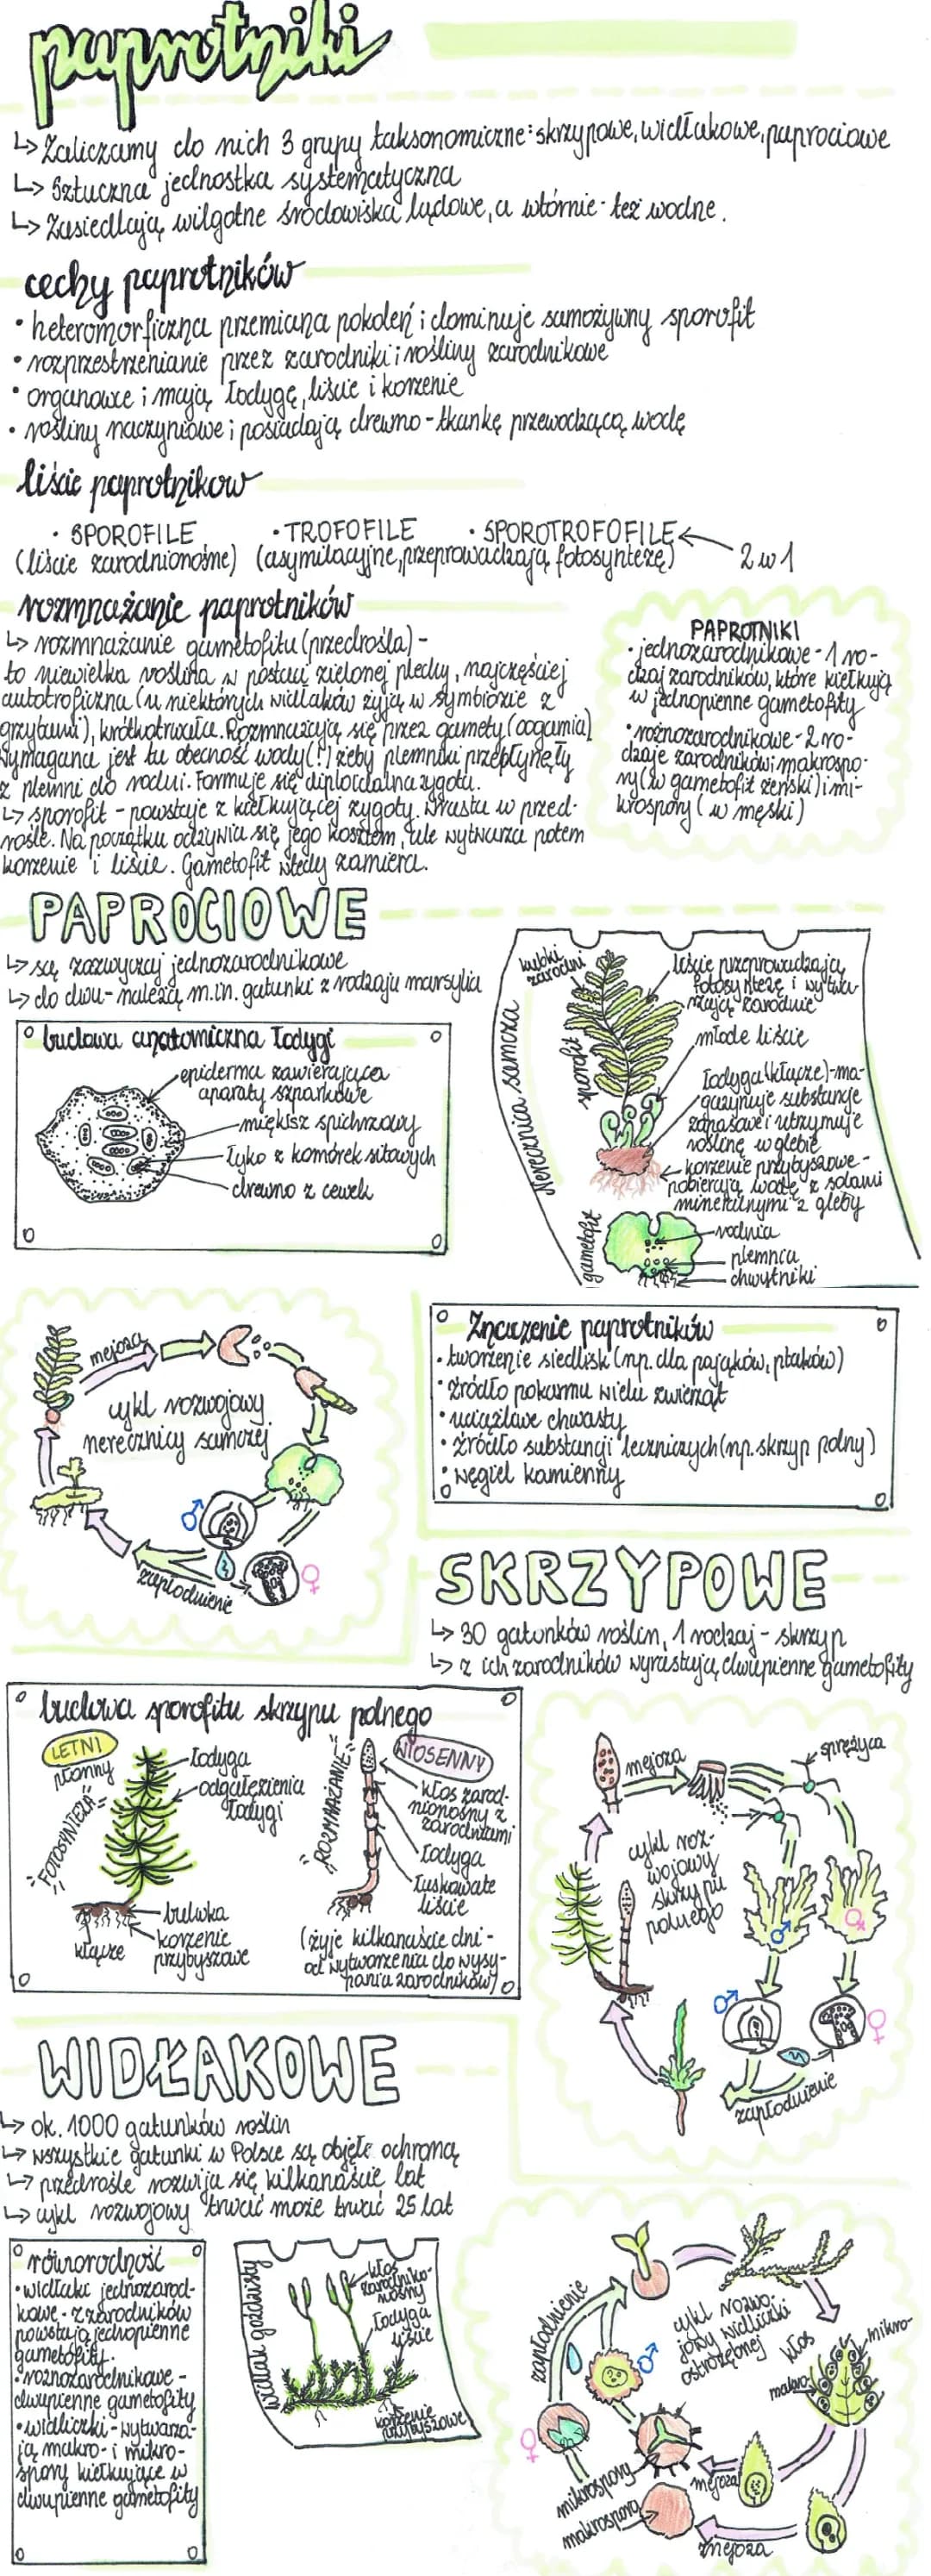 paprotniki
↳ Zaliczamy do nich 3 grupy taksonomiczne: skrzypowe, widłakowe, paprociowe
↳ Sztuczna jednostka systematyczna
↳ Zasiedlają wilgotne środowiska lądowe, a wtórnie - też wodne.
cechy paprotników
• heteromorficzna przemiana pokoleń i dominuje samożywny sporofit
• rozprzestrzenianie przez zarodniki i rośliny zarodnikowe
• organowce i mają łodygę, liście i korzenie
• rośliny naczyniowe i posiadają drewno - tkankę przewodzącą wodę
liście paprotników
• SPOROFILE • TROFOFILE • SPOROTROFOFILE
(liście zarodnionośne) (asymilacyjne, przeprowadzają fotosyntezę) 2 w 1
rozmnażanie paprotników
↳ rozmnażanie gametofitu (przedrośla) -
to niewielka roślina w postaci zielonej plechy, najczęściej
autotroficzna (u niektórych widłaków żyją w symbiozie z
grzybami), krótkotrwała. Rozmnażają się przez gamety (oogamia)
Wymagana jest tu obecność wody (!) żeby plemniki przepłynęły
z plemni do rodni. Formuje się diploidalna zygota.
↳ sporofit - powstaje z kiełkującej zygoty. Wrasta w przed-
rośle. Na początku odżywia się jego kosztem, ale wytwarza potem
korzenie i liście. Gametofit wtedy zamiera.
PAPROTNIKI
• jednozarodnikowe - 1 ro-
dzaj zarodników, które kiełkują
w jednopienne gametofity
• różnozarodnikowe - 2 ro-
dzaje zarodników; makrospo-
ry (w gametofit żeński) i mi-
krospory (w męski)
PAPROCIOWE
↳ są zazwyczaj jednozarodnikowe
↳ do dwu- należą m.in. gatunki z rodzaju marsylia
budowa anatomiczna łodygi
epiderma zawierająca
aparaty szparkowe
miękisz spichrzowy
łyko z komórek sitowych
drewno z cewek
Nerecznica samcza
kupki
zarodni
sporofit
liście przeprowadzają
fotosyntezę i wytwa-
rzają zarodnie
młode liście
łodyga (kłącze) - ma-
gazynuje substancje
zapasowe i utrzymuje
roślinę w glebie
korzenie przybyszowe -
pobierają wodę z solami
mineralnymi z gleby
gametofit
rodnia
plemnia
chwytniki
mejoza
cykl rozwojowy
nerecznicy samczej
zapłodnienie
Znaczenie paprotników
• tworzenie siedlisk (np. dla pająków, ptaków)
• źródło pokarmu wielu zwierząt
• uciążliwe chwasty
• źródło substancji leczniczych (np. skrzyp polny)
• węgiel kamienny
SKRZYPOWE
↳ 30 gatunków roślin, 1 rodzaj - skrzyp
↳ z ich zarodników wyrastają dwupienne gametofity
budowa sporofitu skrzypu polnego
LETNI
płonny
"FOTOSYNTEZA"
łodyga
odgałęzienia
łodygi
bulwka
korzenie
przybyszowe
kłącze
"ROZMNAŻANIE"
WIOSENNY
kłos zarod-
nionośny z
zarodniami
łodyga
łuskowate
liście
(żyje kilkanaście dni -
od wytworzenia do wysy-
pania zarodników)
mejoza
sprężyca
cykl roz-
wojowy
skrzypu
polnego
zapłodnienie
WIDŁAKOWE
↳ ok. 1000 gatunków roślin
↳ wszystkie gatunki w Polsce są objęte ochroną
↳ przedrośle rozwija się kilkanaście lat
↳ cykl rozwojowy trwać może trwać 25 lat
różnorodność
• widłaki jednozarod-
kowe - z zarodników
powstają jednopienne
gametofity.
• różnozarodnikowe -
dwupienne gametofity
• widliczki - wytwarza-
ją makro- i mikro-
spory kiełkujące w
dwupienne gametofity
widłak goździsty
kłos
zarodniko-
nośny
łodyga
liście
korzenie
przybyszowe
zapłodnienie
cykl rozwo-
jowy widliczki
ostrozębnej
kłos
mikro-
makro-
mejoza
mikrospory
makrospora
mejoza